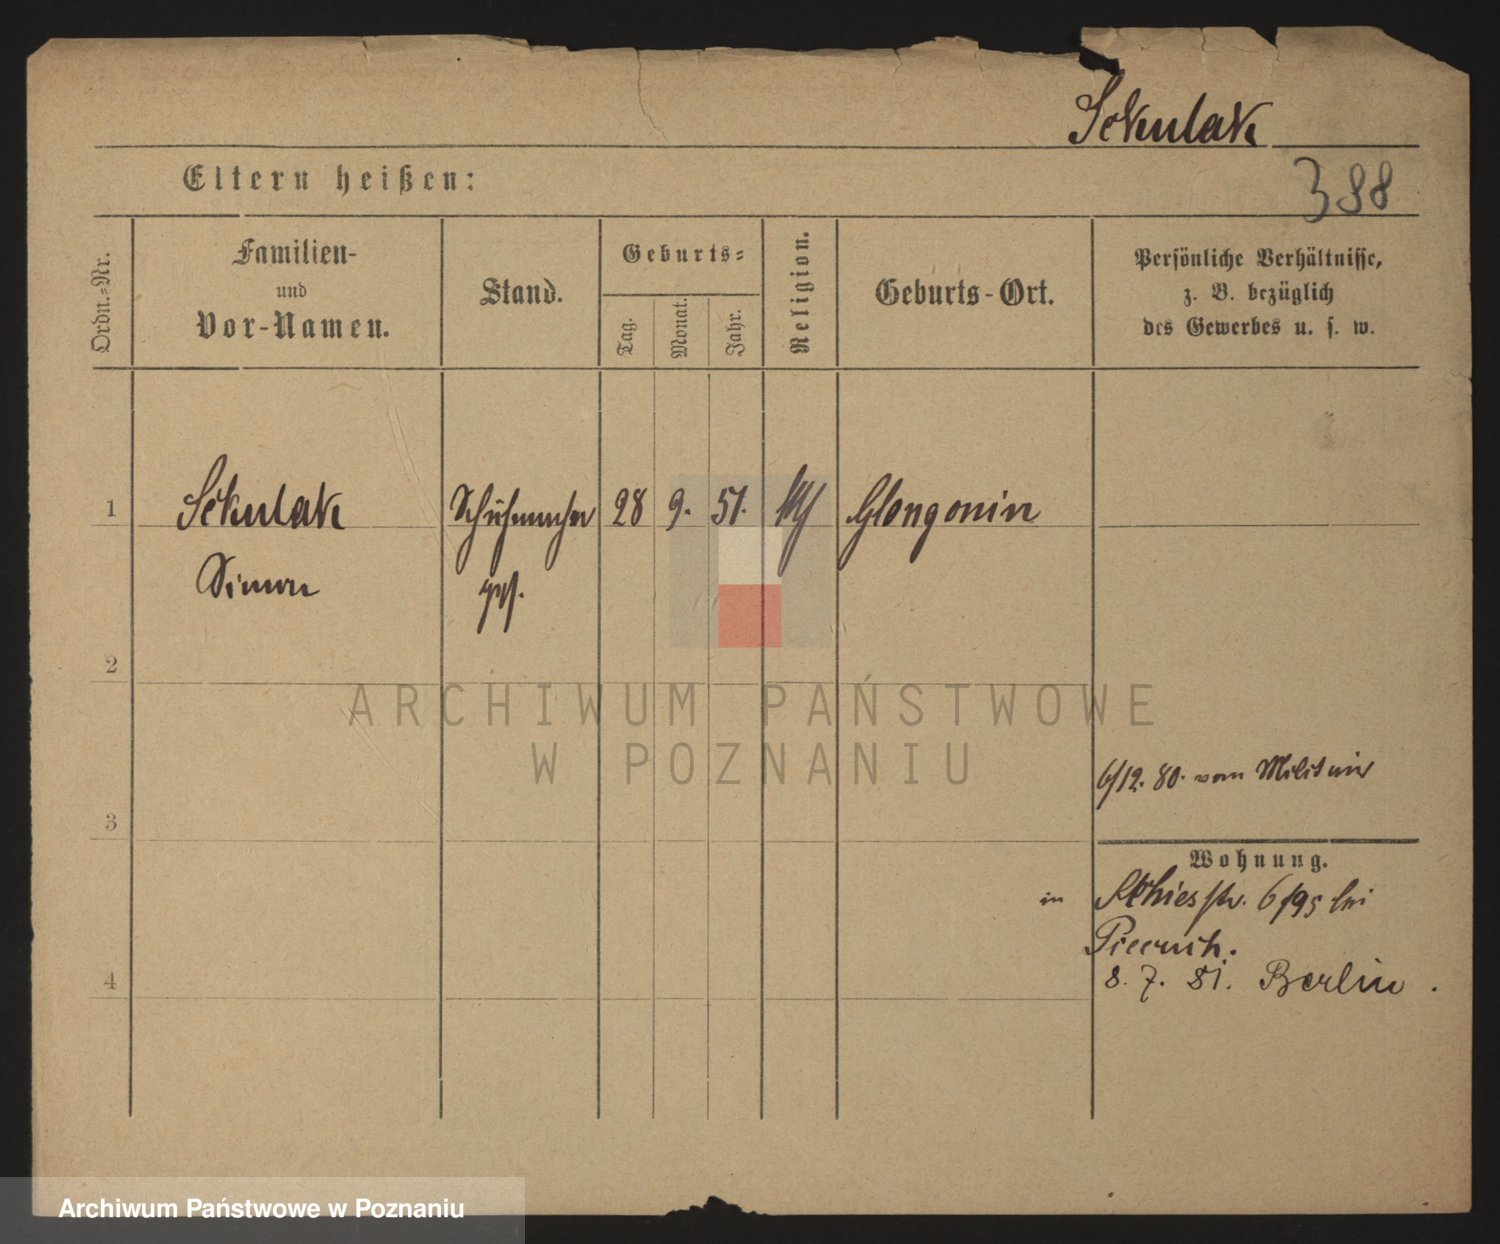 Sekulak
388
Eltern heißen:
Ordn.-Nr.
Familien-
und
Vor-Namen.
Stand.
Geburts-
Tag.
Monat.
Jahr.
Religion.
Geburts-Ort.
Persönliche Verhältnisse,
z. B. bezüglich
des Gewerbes u. s. w.
1
Sekulak
Schuhmacher
28
9.
51.
Glongonin
Simon
2
3
4
6/12. 80. vom Militair
Wohnung.
in
6/95 bei
8. 7. 81. Berlin.
ARCHIWUM PAŃSTWOWE
W POZNANIU
Archiwum Państwowe w Poznaniu